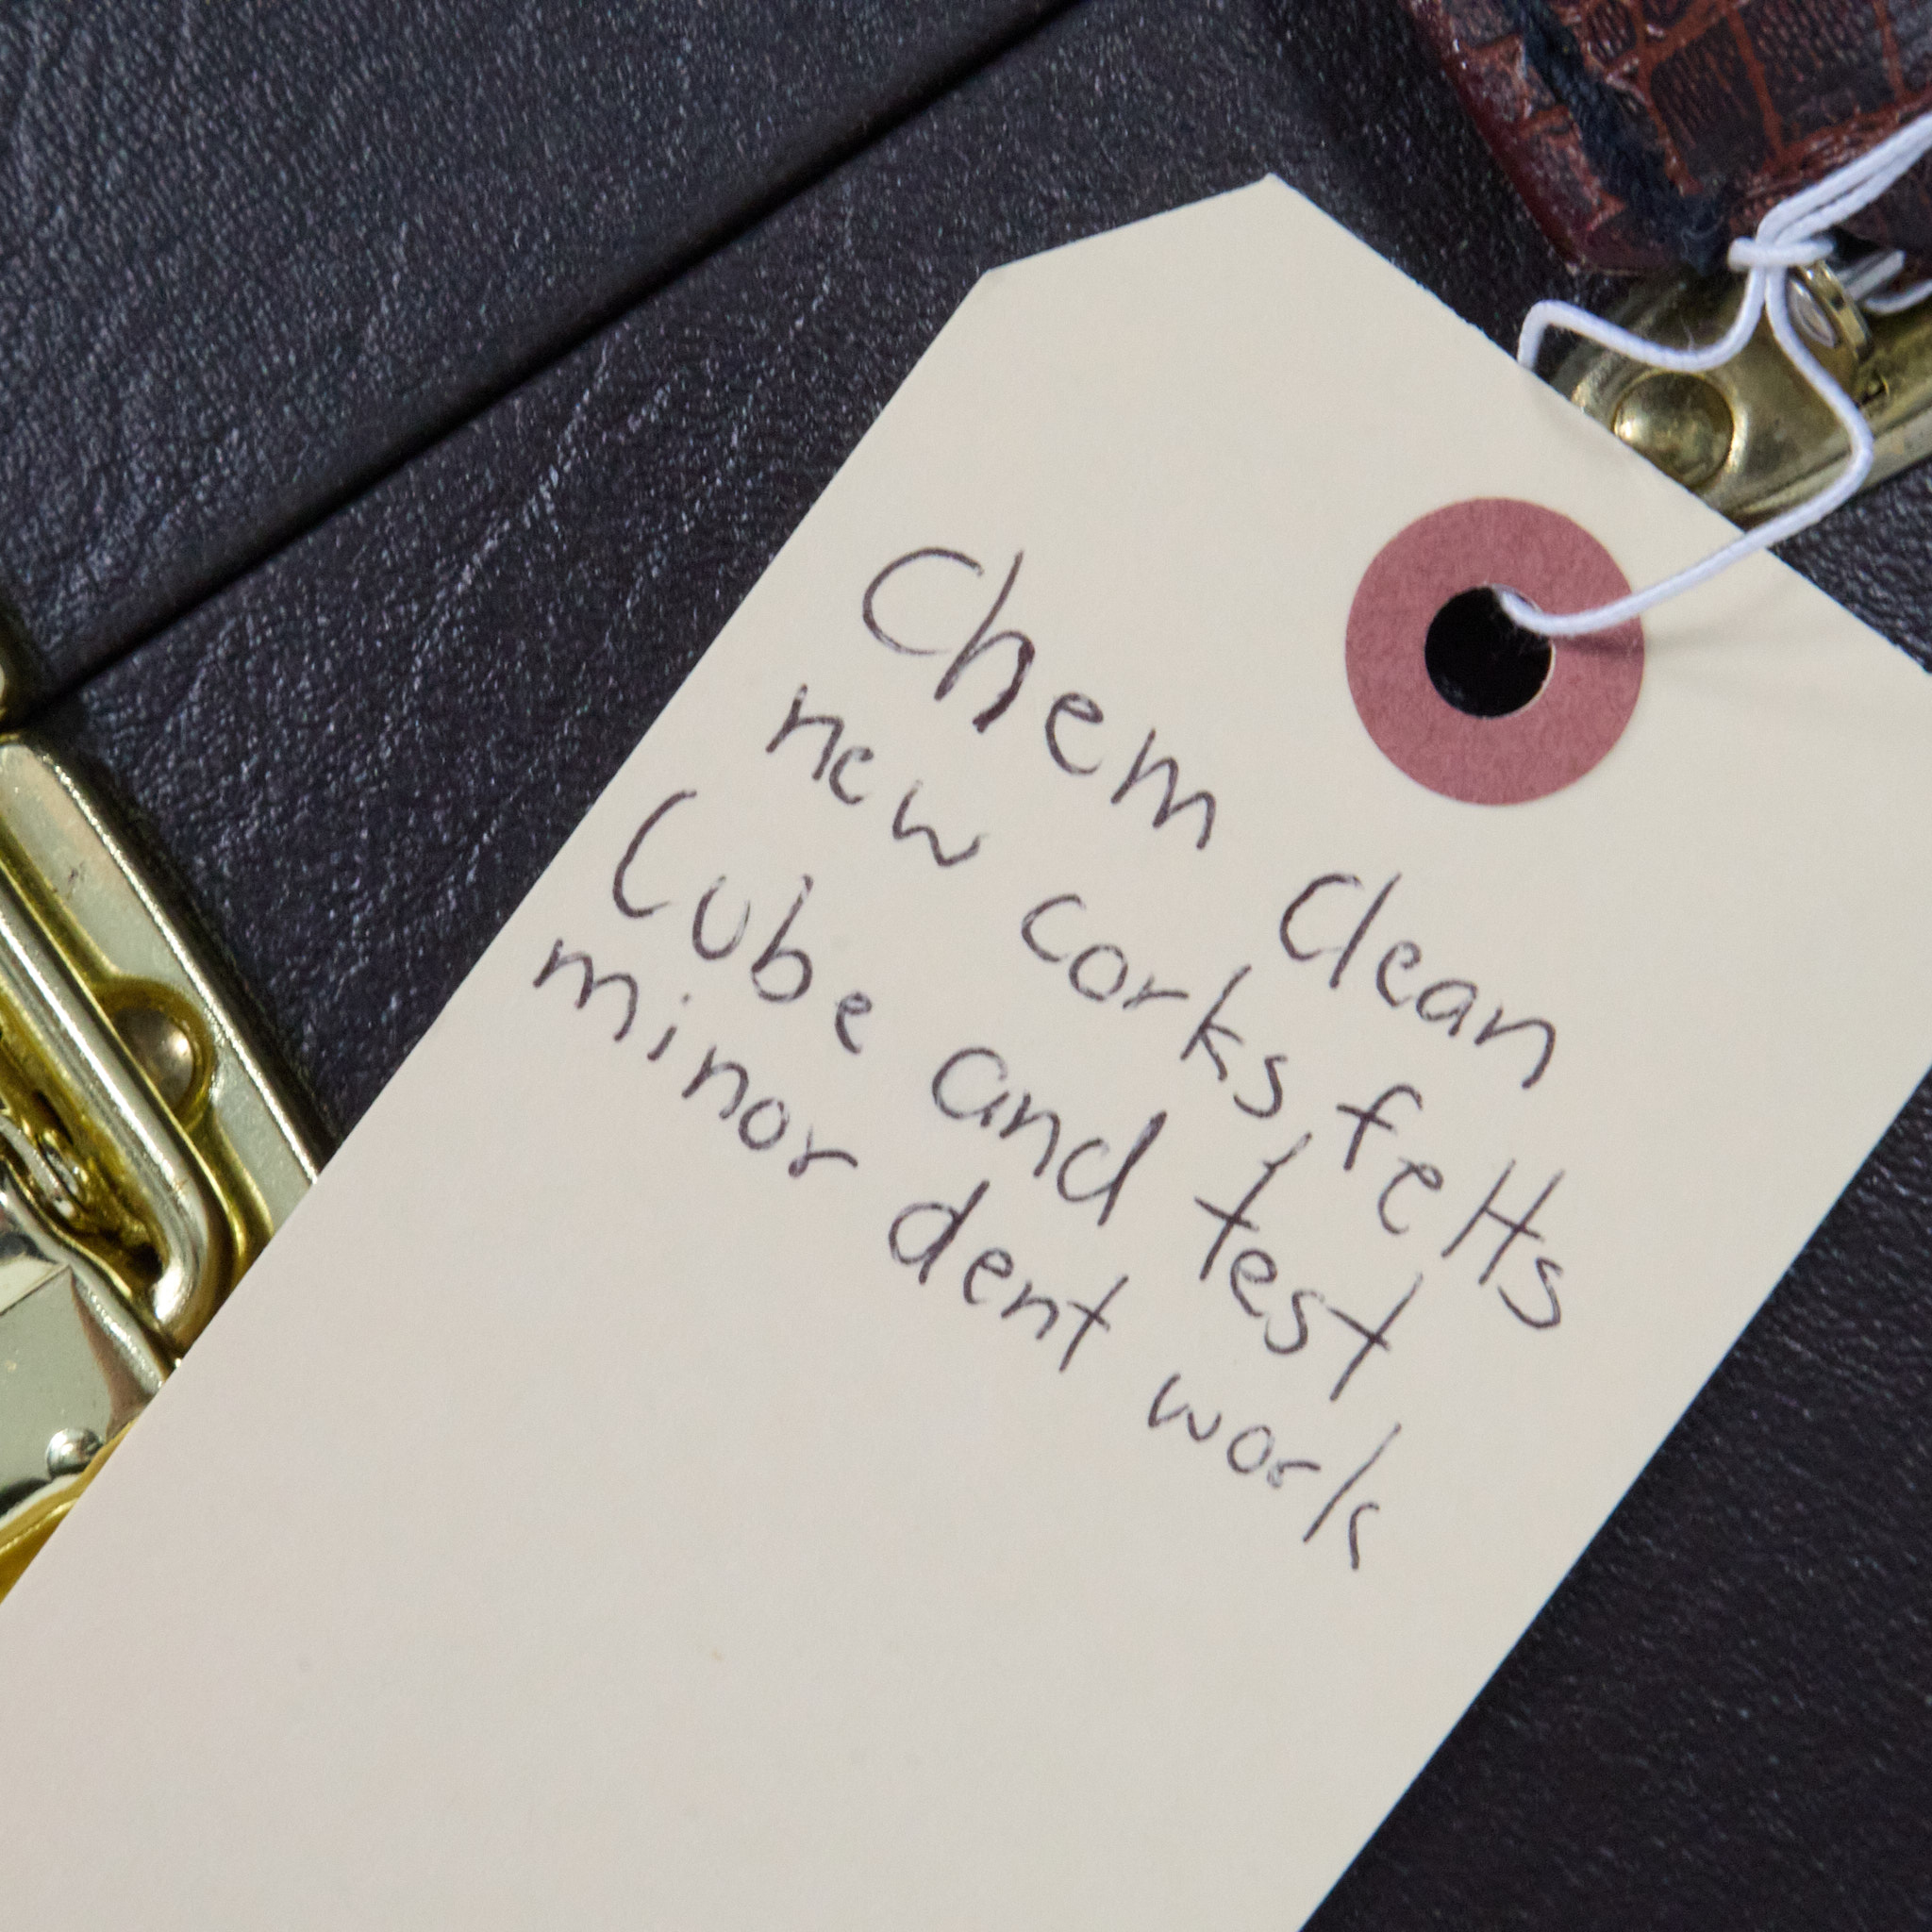 Chem Clean
new corks felts
Cube and test
minor dent work